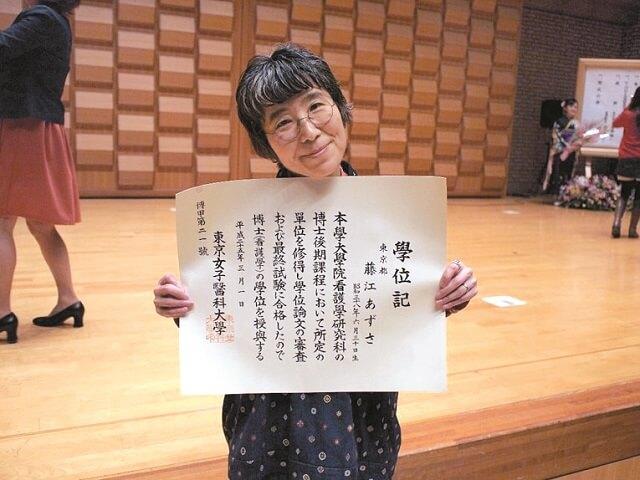 學位記
東京都
藤江あずさ
昭和三十八年六月三十日生
本學大學院看護學研究科の
博士後期課程において所定の
單位を修得し學位論文の審査
および最終試験に合格したので
博士(看護學)の學位を授與する
平成二十五年三月一日
東京女子醫科大學
博甲第二一號